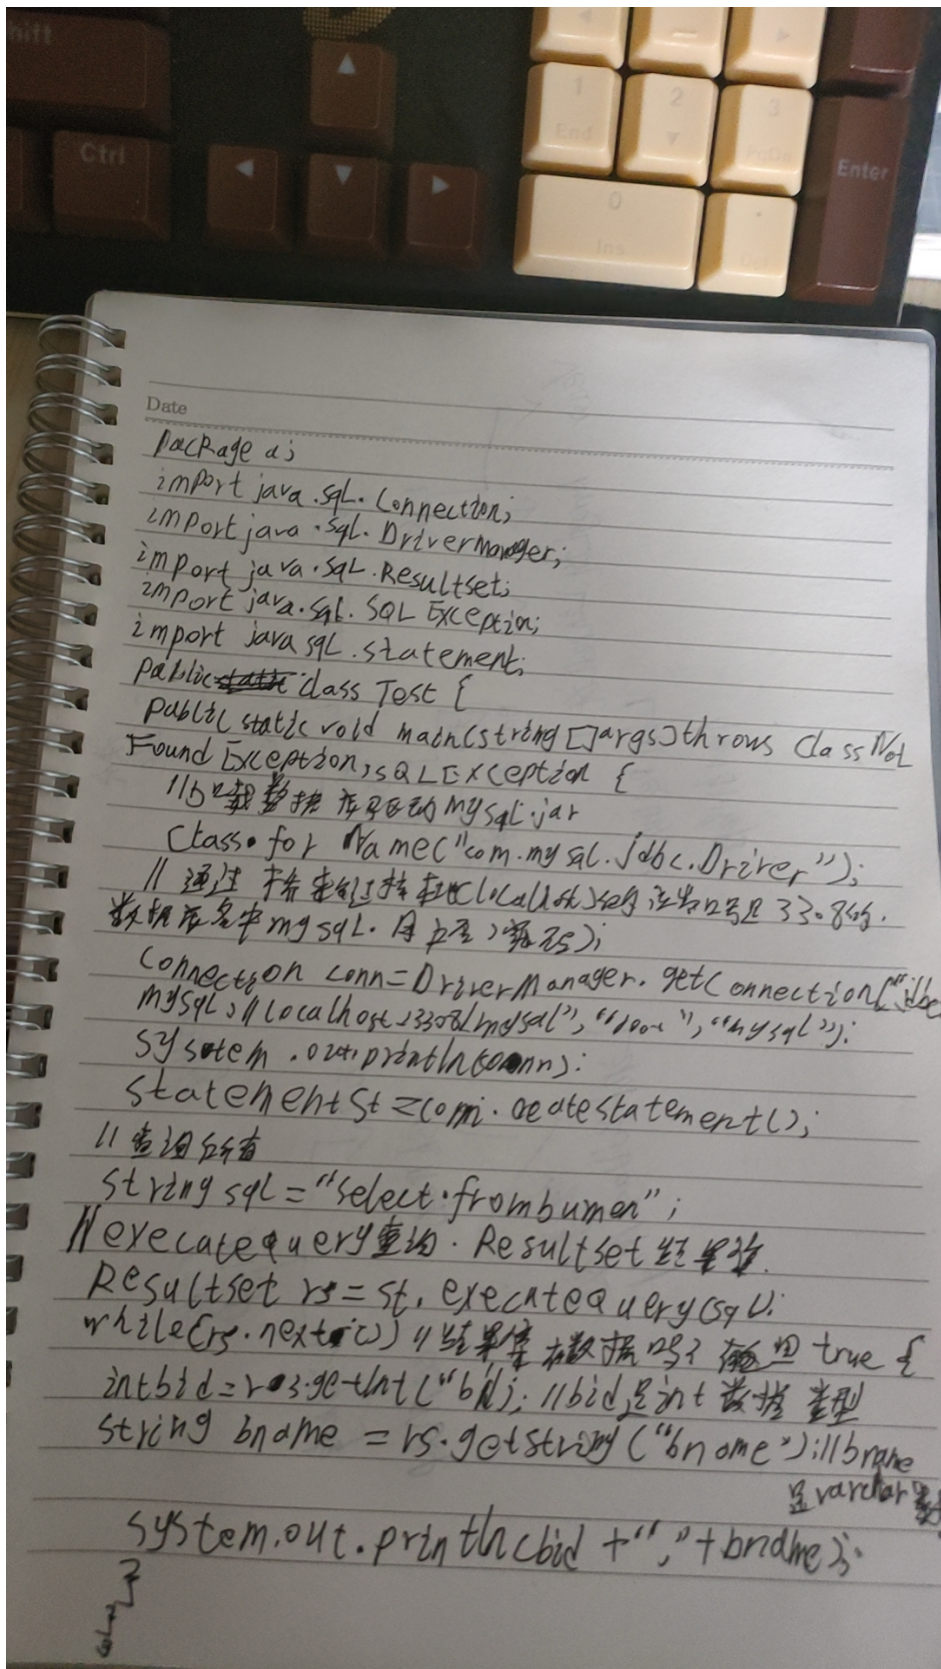 Shift
Ctrl
1
End
2
3
PgDn
Enter
0
Ins
Del
Date
package a;
import java.sql.Connection;
import java.sql.DriverManager;
import java.sql.Resultset;
import java.sql.SQLException;
import java sql.statement;
public class Test {
public static void main(string[]args)throws ClassNot
FoundException,SQLException {
数据库驱动mysql.jar
Class.forName("com.mysql.jdbc.Driver");
// 通过
数据库名字mysql.
Connection conn=DriverManager.getConnection("jdbc
mysql://localhost:3308/mysql","root","mysql");
system.out.println(conn);
statement st=conn.createstatement();
//查询所有
string sql="select*from bumen";
//executequery查询.Resultset结果集.
Resultset rs=st.executequery(sql);
while(rs.next()) //结果集有数据吗?有返回true {
int bid=rs.getInt("bid"); //bid是int数据类型
string bname=rs.getstring("bname");//bname
是varchar数
system.out.println(bid+","+bname);
}
}
}